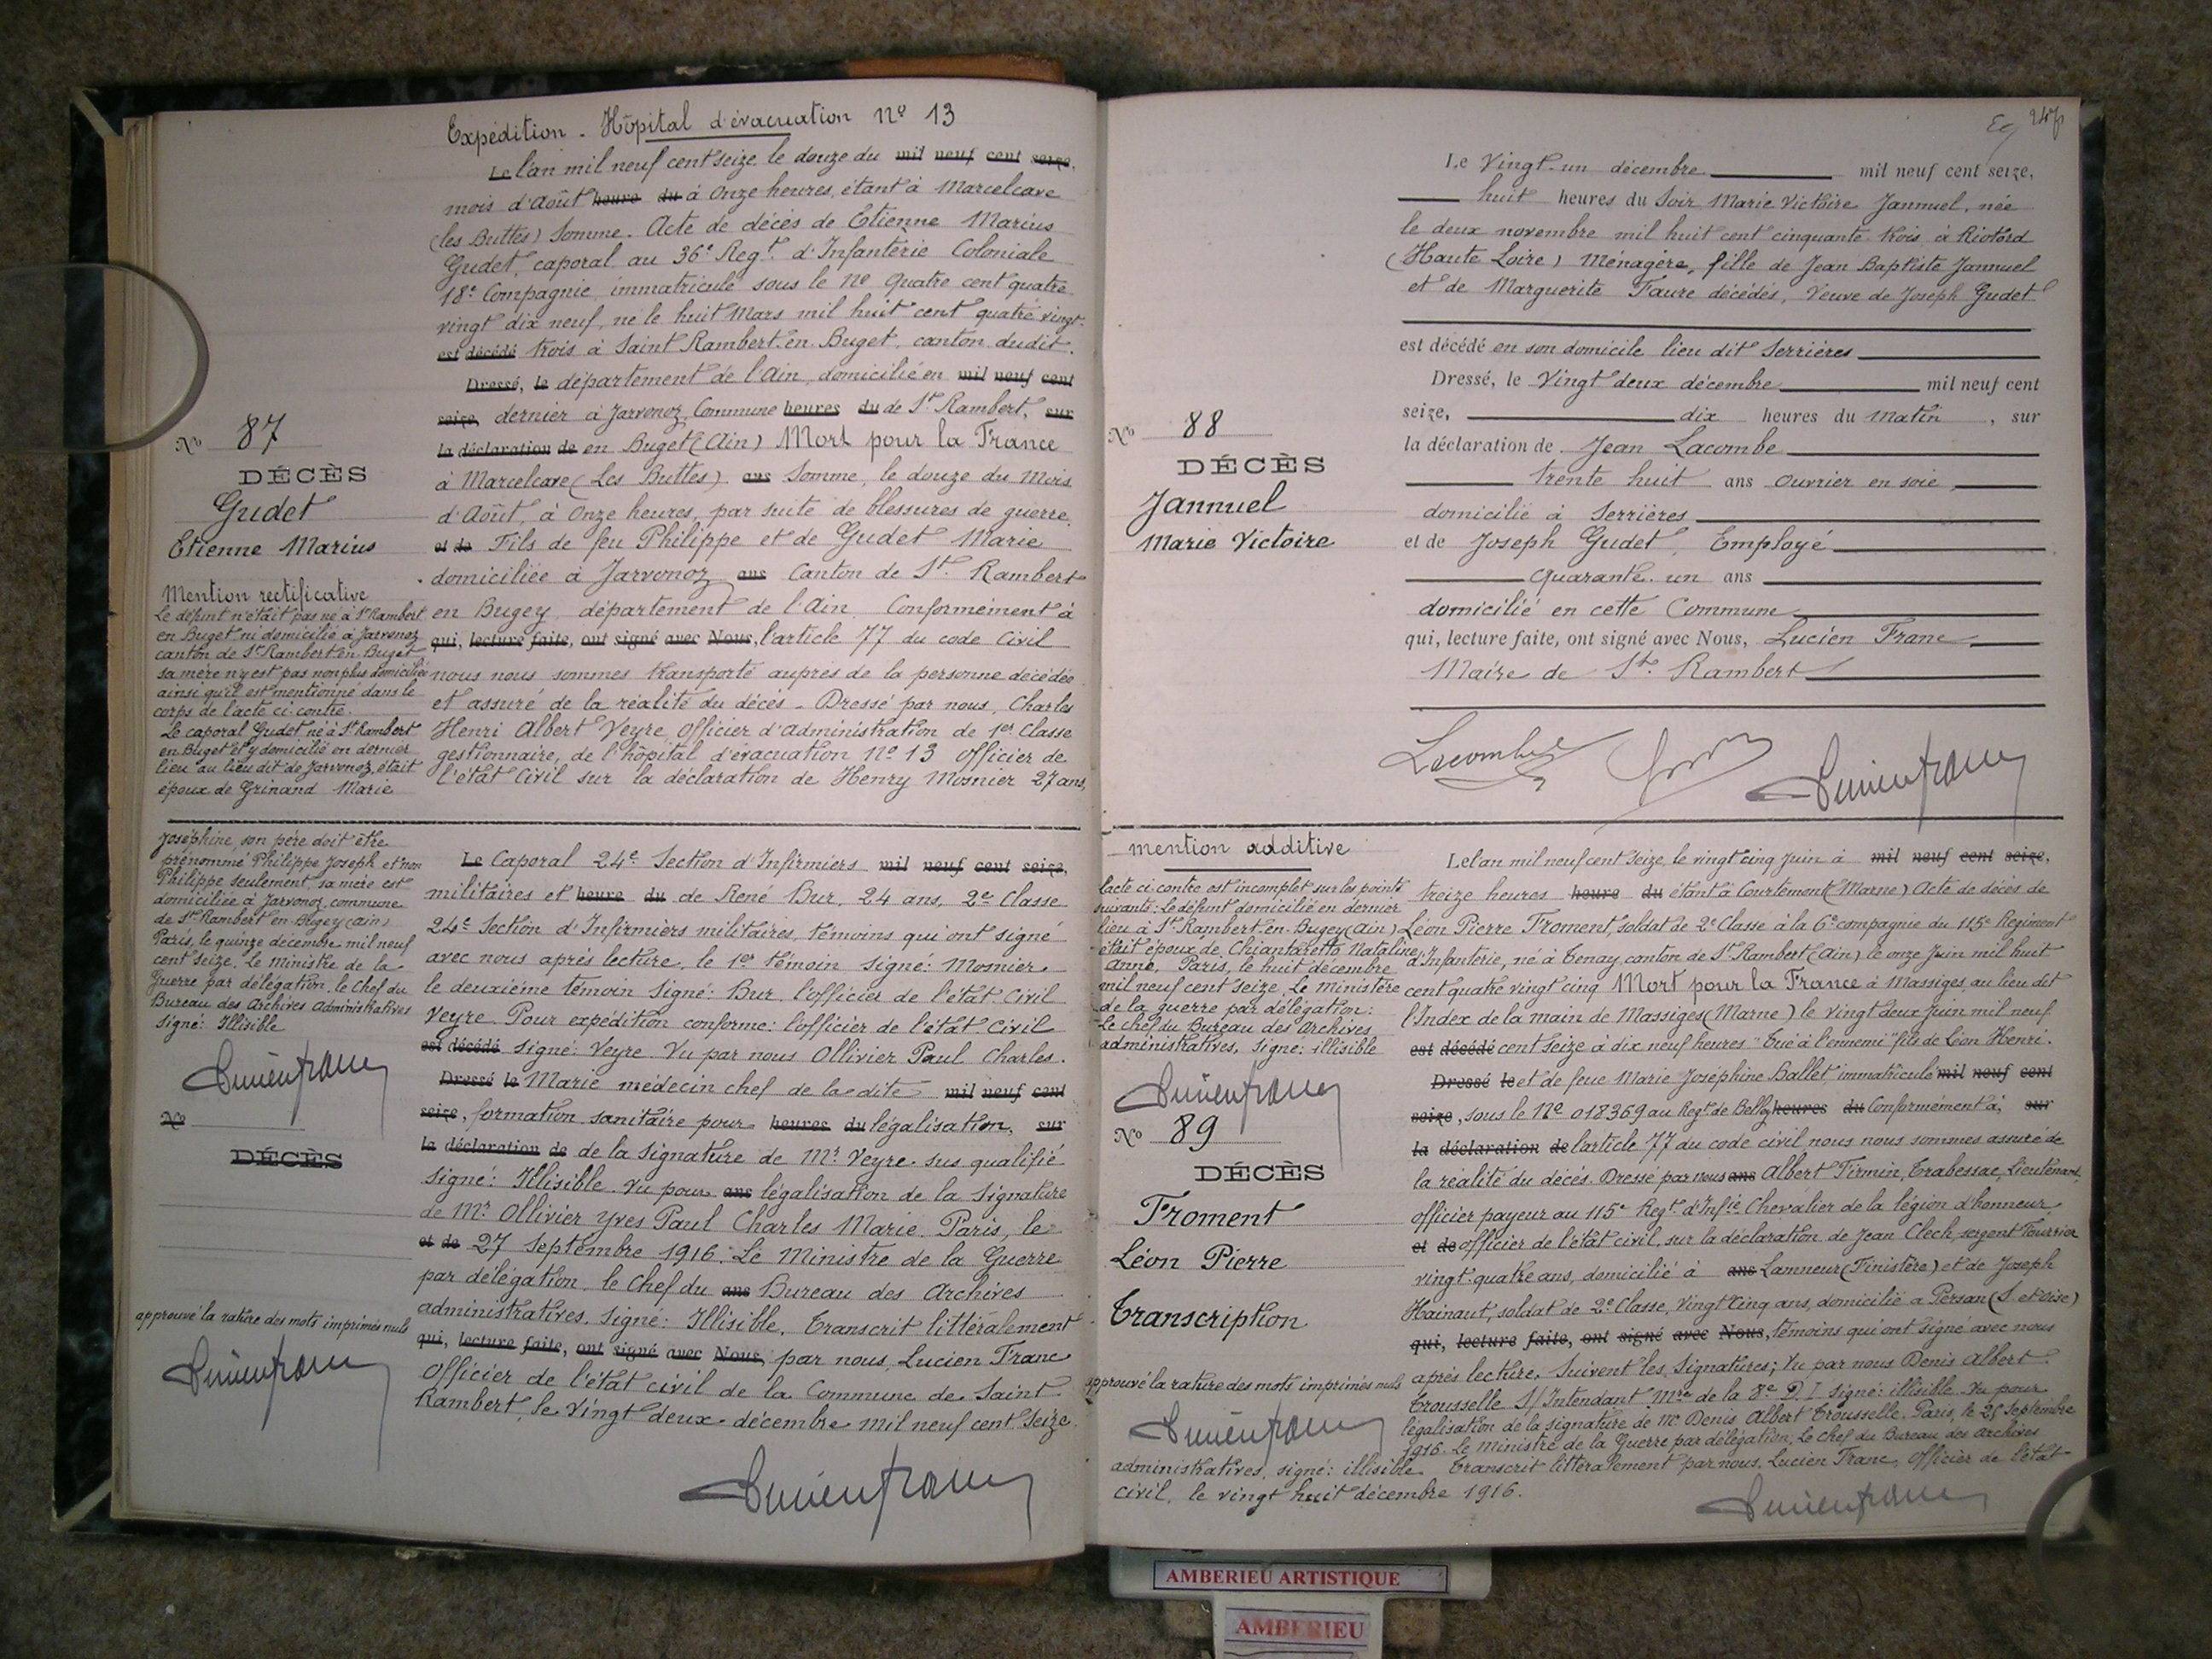 Expédition - Hôpital d'évacuation nº 13
Le l'an mil neuf cent seize le douze du mil neuf cent seize,
mois d'Août heure du à onze heures, étant à Marcelcave
(les Buttes) Somme. Acte de décès de Etienne Marius
Gudet, caporal au 36e Regt. d'Infanterie Coloniale
18e Compagnie immatriculé sous le nº quatre cent quatre
vingt dix neuf, né le huit Mars mil huit cent quatre vingt
est décédé trois à Saint Rambert en Buget, canton dudit.
Dressé, le département de l'Ain, domicilié en mil neuf cent
seize, dernier à Jarvonoz, Commune heures du de St Rambert, sur
la déclaration de en Buget (Ain) Mort pour la France
à Marcelcave (Les Buttes) ans Somme, le douze du Mois
d'Août, à Onze heures, par suite de blessures de guerre.
et de Fils de feu Philippe et de Gudet Marie
domiciliée à Jarvonoz ans Canton de St. Rambert
en Bugey, département de l'Ain. Conformément à
qui, lecture faite, ont signé avec Nous, l'article 77 du code Civil
nous nous sommes transporté auprès de la personne décédée
et assuré de la réalité du décès. Dressé par nous, Charles
Henri Albert Veyre, Officier d'administration de 1re Classe
gestionnaire, de l'hôpital d'évacuation nº 13 Officier de
l'état Civil sur la déclaration de Henry Mosnier 27 ans,
Nº 87
DÉCÈS
Gudet
Etienne Marius
Mention rectificative
Le défunt n'était pas né à St Rambert
en Buget ni domicilié à Jarvonoz
canton de St Rambert en Buget
sa mère n'y est pas non plus domiciliée
ainsi qu'il est mentionné dans le
corps de l'acte ci-contre.
Le caporal Gudet, né à St Rambert
en Buget et y domicilié en dernier
lieu au lieu dit de Jarvonoz, était
époux de Grinand Marie
Joséphine, son père doit être
prénommé Philippe Joseph et non
Philippe seulement, sa mère est
domiciliée à Jarvonoz, commune
de St Rambert en Bugey (Ain)
Paris, le quinze décembre mil neuf
cent seize. Le ministre de la
Guerre par délégation, le Chef du
Bureau des Archives Administratives
Signé: Illisible
Lucien Franc
Nº
DÉCÈS
approuvé la rature des mots imprimés nuls
Lucien Franc
Le Caporal 24e Section d'Infirmiers mil neuf cent seize,
militaires et heure du de René Bur, 24 ans, 2e Classe
24e Section d'Infirmiers militaires, témoins qui ont signé
avec nous après lecture, le 1er témoin signé: Mosnier
le deuxième témoin Signé: Bur. l'officier de l'état Civil
Veyre. Pour expédition conforme: l'officier de l'état Civil
est décédé signé: Veyre. Vu par nous Ollivier Paul Charles.
Dressé le Marie médecin chef de la dite mil neuf cent
seize, formation sanitaire pour heures du légalisation, sur
la déclaration de de la Signature de Mr Veyre sus qualifié
Signé: Illisible. Vu pour ans légalisation de la Signature
de Mr Ollivier Yves Paul Charles Marie. Paris, le
et de 27 Septembre 1916. Le Ministre de la Guerre
par délégation, le Chef du ans Bureau des Archives
administratives, Signé: Illisible. Transcrit littéralement
qui, lecture faite, ont signé avec Nous, par nous, Lucien Franc
Officier de l'état civil de la Commune de Saint
Rambert, le vingt deux décembre mil neuf cent seize.
Lucien Franc
247
Le Vingt-un décembre mil neuf cent seize,
huit heures du Soir Marie Victoire Jannuel, née
le deux novembre mil huit cent cinquante trois à Riotord
(Haute Loire) Ménagère, fille de Jean Baptiste Jannuel
et de Marguerite Faure décédés, Veuve de Joseph Gudet
est décédé en son domicile lieu dit Serrières
Dressé, le Vingt deux décembre mil neuf cent
seize, dix heures du Matin, sur
la déclaration de Jean Lacombe
trente huit ans Ouvrier en soie
domicilié à Serrières
et de Joseph Gudet, Employé
Quarante un ans
domicilié en cette Commune
qui, lecture faite, ont signé avec Nous, Lucien Franc
Maire de St. Rambert
Lacombe Lucien Franc
Nº 88
DÉCÈS
Jannuel
Marie Victoire
mention additive
l'acte ci-contre est incomplet sur les points
suivants: Le défunt domicilié en dernier
lieu à St Rambert-en-Bugey (Ain)
était époux de Chiantaretto Nataline
Anne. Paris, le huit décembre
mil neuf cent seize. Le ministère
de la guerre par délégation:
Le chef du Bureau des Archives
administratives, Signé: illisible
Lucien Franc
Nº 89
DÉCÈS
Froment
Léon Pierre
Transcription
approuvé la rature des mots imprimés nuls
Lucien Franc
Le l'an mil neuf cent seize, le vingt cinq Juin à mil neuf cent seize,
treize heures heure du étant à Courtémont (Marne) Acte de décès de
Léon Pierre Froment, soldat de 2e Classe à la 6e compagnie du 115e Régiment
d'Infanterie, né à Tenay canton de St Rambert (Ain) le onze Juin mil huit
cent quatre vingt cinq Mort pour la France à Massiges, au lieu dit
l'Index de la main de Massiges (Marne) le vingt deux Juin mil neuf
est décédé cent seize à dix neuf heures "Tué à l'ennemi" fils de Léon Henri.
Dressé le et de feue Marie Joséphine Ballet, immatriculé mil neuf cent
seize, sous le Nº 018369 au Regt. de Belley heures du Conformément à, sur
la déclaration de l'article 77 du code civil nous nous sommes assuré de
la réalité du décès. Dressé par nous ans Albert Firmin, Trabessac, Lieutenant,
officier payeur au 115e Regt. d'Infie Chevalier de la légion d'honneur,
et de officier de l'état civil, sur la déclaration de Jean Clech, sergent Fourrier
vingt-quatre ans, domicilié à ans Lanmeur (Finistère) et de Joseph
Hainaut, soldat de 2e Classe, vingt cinq ans, domicilié à Persan (S. et Oise)
qui, lecture faite, ont signé avec Nous, témoins qui ont signé avec nous
après lecture. Suivent les Signatures; Vu par nous Denis Albert
Trousselle S/Intendant Mre de la 8e D I signé: illisible. Vu pour
légalisation de la signature de Mr Denis Albert Trousselle. Paris, le 25 Septembre
1916. Le Ministre de la Guerre par délégation, Le Chef du Bureau des Archives
administratives, signé: illisible Transcrit littéralement par nous, Lucien Franc, Officier de l'état-
civil, le vingt huit décembre 1916.
Lucien Franc
AMBERIEU ARTISTIQUE
AMBERIEU